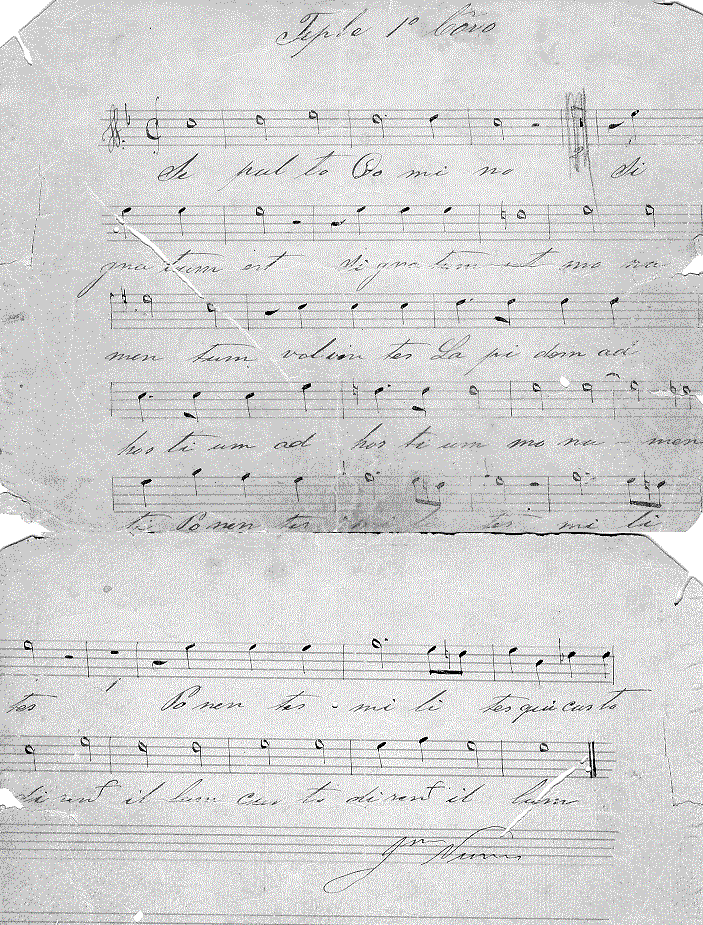 Tiple 1º Côro
Se pul to Do mi no Si
gna tum est Si gna tum est mo nu
men tum volven tes La pi dem ad
hos ti um ad hos ti um mo nu - men
Ponen tes mi li tes mi li
tes Po nen tes - mi li tes qui cus to
di rent il lum cus to di rent il lum